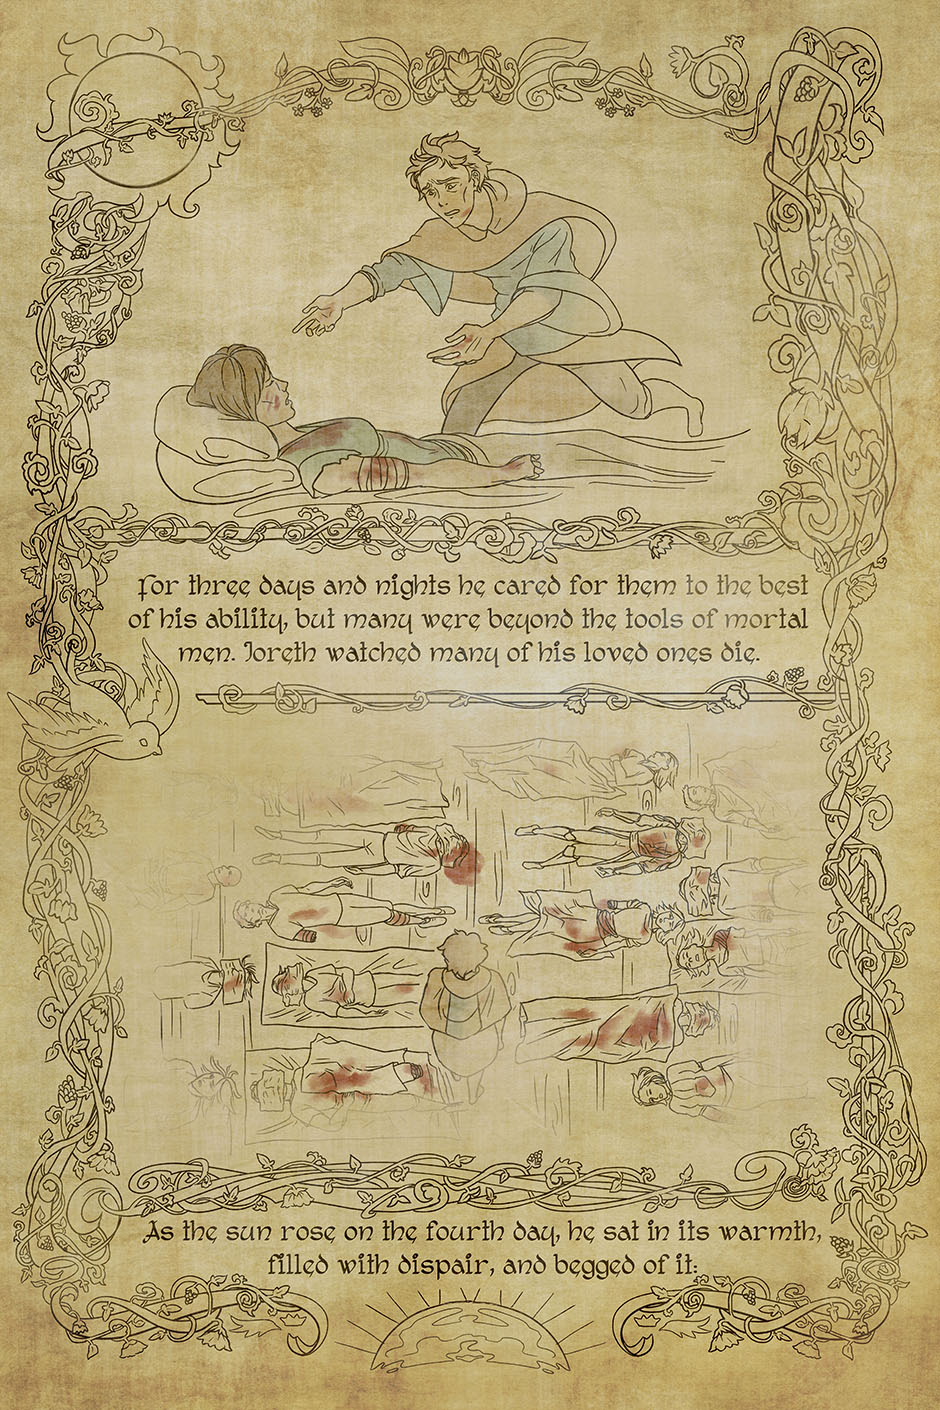 For three days and nights he cared for them to the best
of his ability, but many were beyond the tools of mortal
men. Joreth watched many of his loved ones die.
As the sun rose on the fourth day, he sat in its warmth,
filled with dispair, and begged of it: